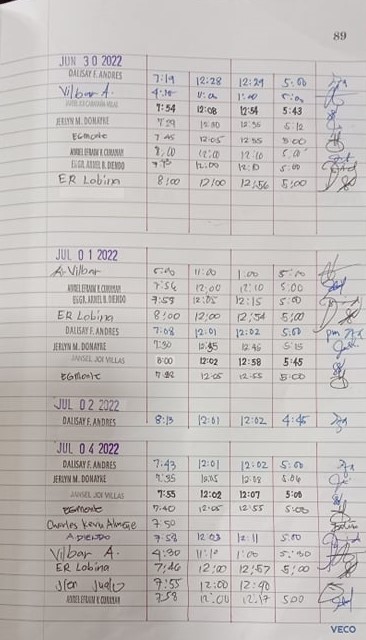 89
JUN 30 2022
DALISAY F. ANDRES 7:19 12:28 12:29 5:00
Vilbar A. 4:15 11:00 1:00 5:00
7:54 12:08 12:54 5:43
JERLYN M. DONAYRE 7:29 12:30 12:35 5:12
EGmonte 7:45 12:05 12:55 5:00
8:00 12:00 12:10 5:00
ENGR. ARIEL B. DIENDO 12:00 12:10 5:00
ER Lobina 8:00 12:00 12:56 5:00
JUL 01 2022
A. Vilbar 11:00 1:00 5:00
7:56 12:00 12:10 5:00
ENGR. ARIEL B. DIENDO 7:59 12:05 12:15 5:00
ER Lobina 8:00 12:00 12:54 5:00
DALISAY F. ANDRES 7:08 12:01 12:02 5:00 pm
JERLYN M. DONAYRE 7:30 12:35 12:45 5:15
JANSEL JOI VILLAS 8:00 12:02 12:58 5:45
EGmonte 12:05 12:55 5:00
JUL 02 2022
DALISAY F. ANDRES 8:13 12:01 12:02 4:45
JUL 04 2022
DALISAY F. ANDRES 7:43 12:01 12:02 5:00
JERLYN M. DONAYRE 7:35
JANSEL JOI VILLAS 7:55 12:02 12:07 5:08
EGmonte 7:40 12:05 12:55 5:00
Charles Kevin 7:50
A DIENDO 7:58 12:03 12:11 5:00
Vilbar A. 4:30 11:10 1:00 5:30
ER Lobina 7:46 12:00 12:57 5:00
7:55 12:00 12:40
7:58 12:00 12:17 5:00
VECO